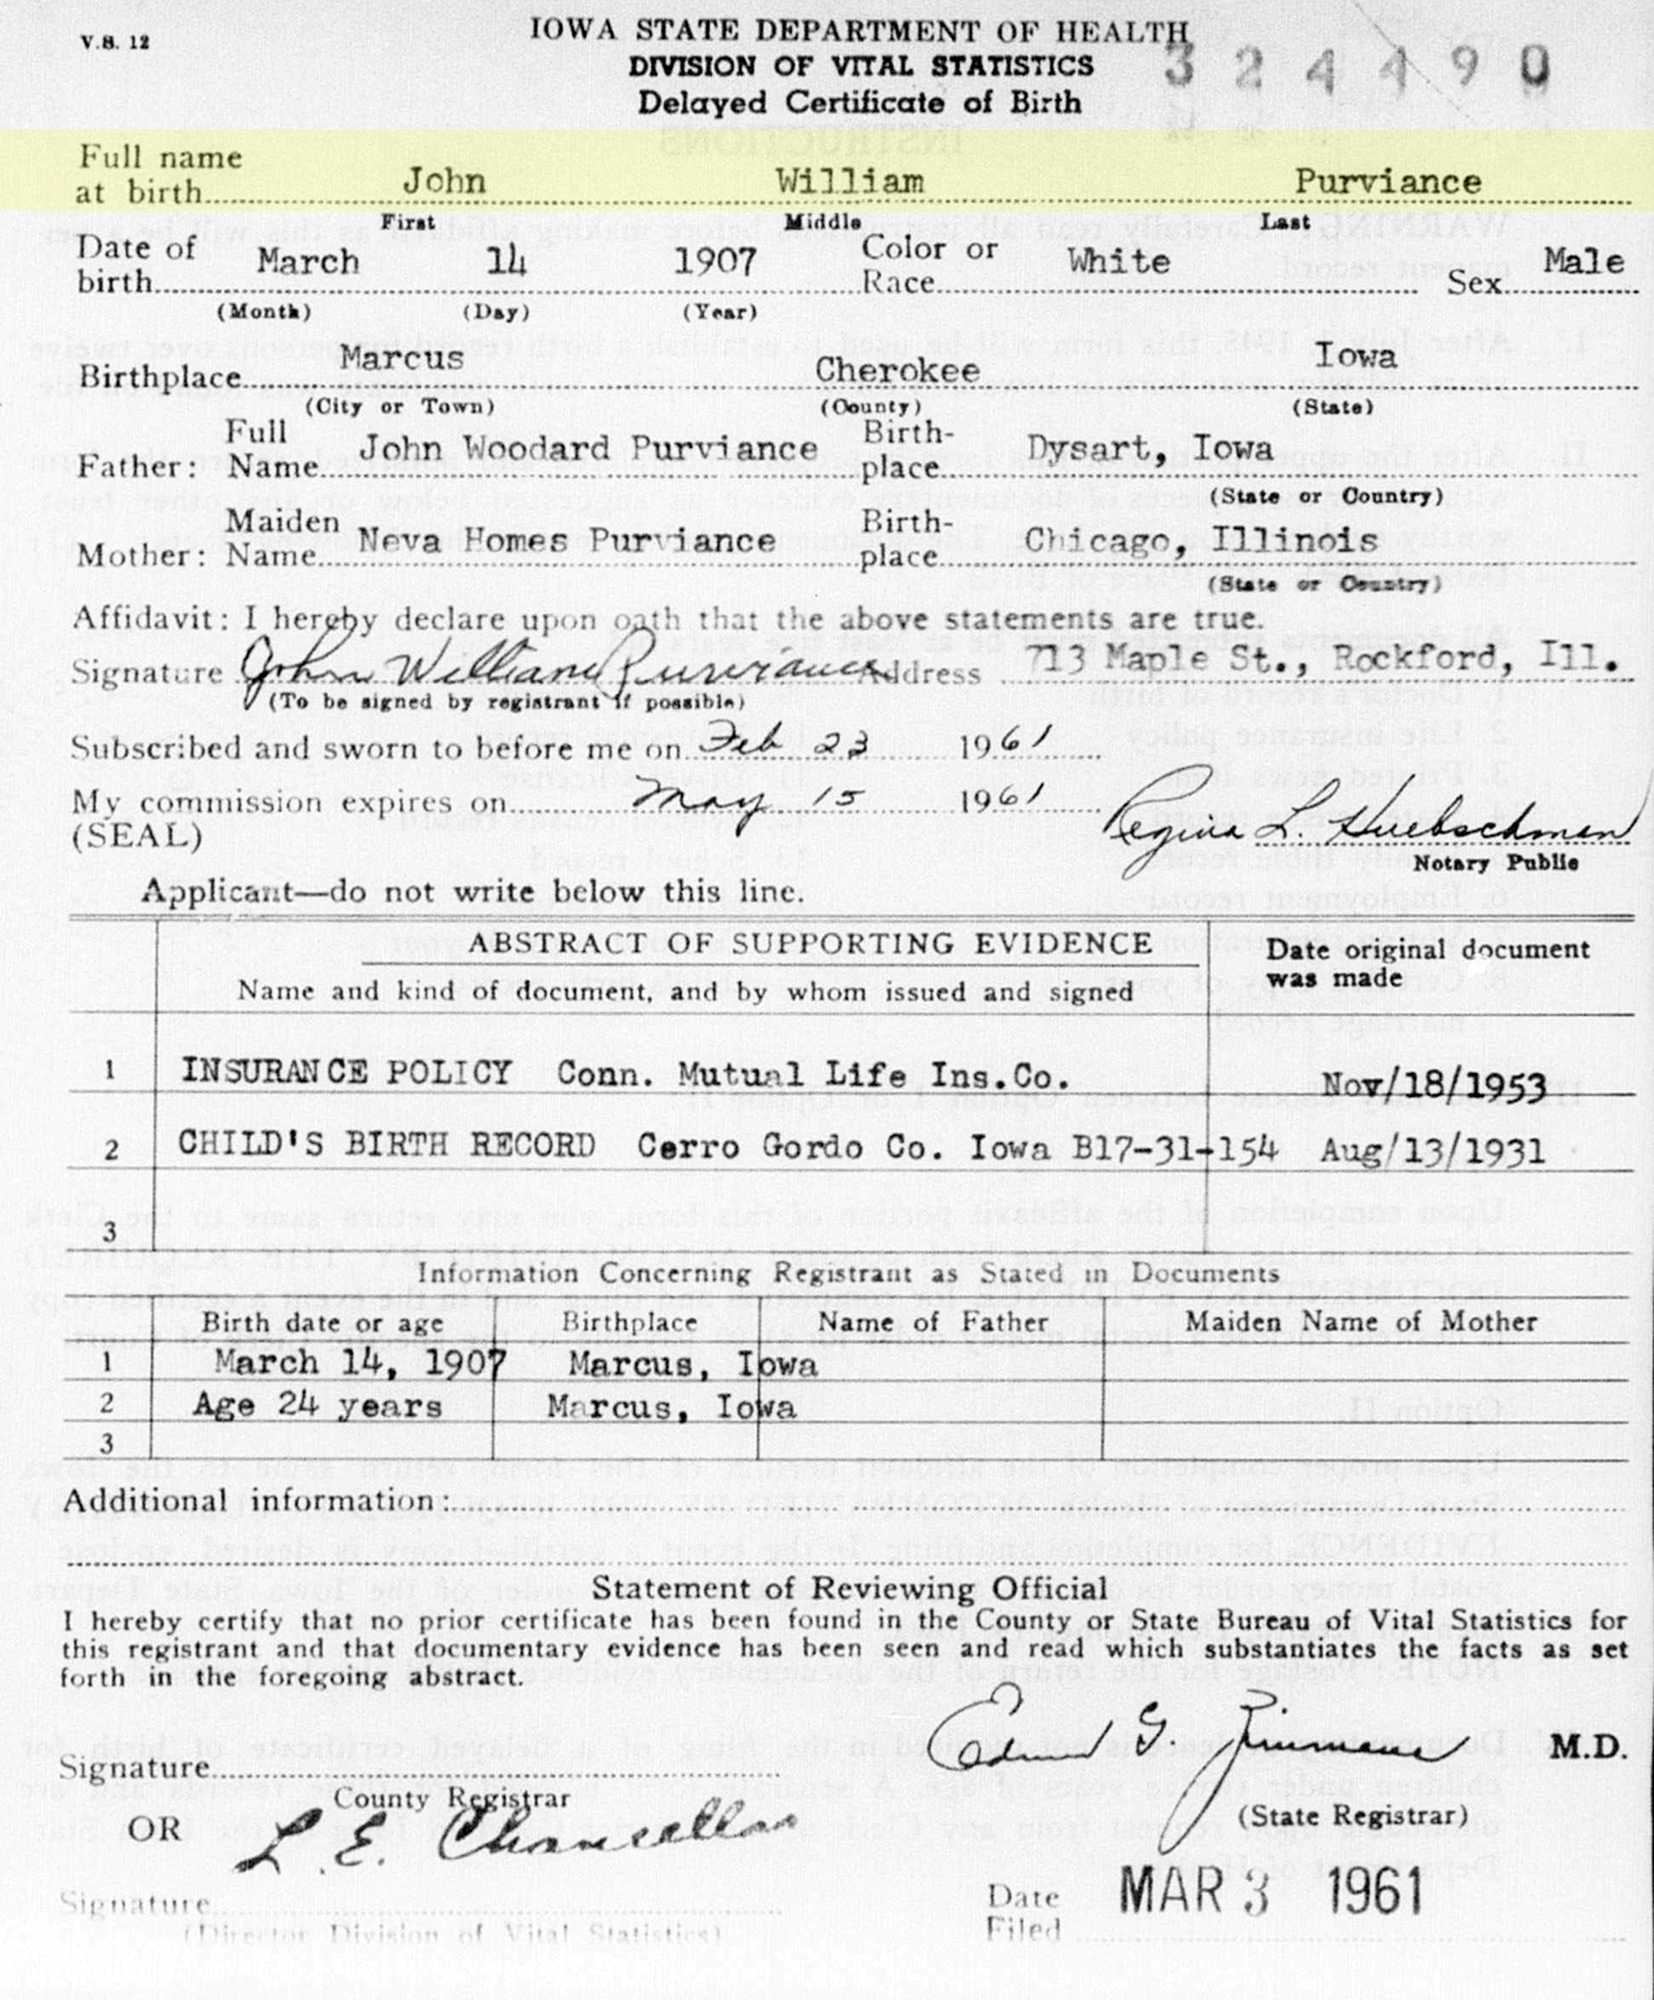 V.S. 12
IOWA STATE DEPARTMENT OF HEALTH
DIVISION OF VITAL STATISTICS
Delayed Certificate of Birth
324490
Full name at birth John William Purviance
First Middle Last
Date of birth March 14 1907 Color or Race White Sex Male
(Month) (Day) (Year)
Birthplace Marcus Cherokee Iowa
(City or Town) (County) (State)
Father: Full Name John Woodard Purviance Birth-place Dysart, Iowa
(State or Country)
Mother: Maiden Name Neva Homes Purviance Birth-place Chicago, Illinois
(State or Country)
Affidavit: I hereby declare upon oath that the above statements are true.
Signature John William Purviance Address 713 Maple St., Rockford, Ill.
(To be signed by registrant if possible)
Subscribed and sworn to before me on Feb 23 1961
My commission expires on May 15 1961
(SEAL) Regina L. Huebschman
Notary Public
Applicant—do not write below this line.
ABSTRACT OF SUPPORTING EVIDENCE
Name and kind of document, and by whom issued and signed
Date original document was made
1 INSURANCE POLICY Conn. Mutual Life Ins.Co. Nov/18/1953
2 CHILD'S BIRTH RECORD Cerro Gordo Co. Iowa B17-31-154 Aug/13/1931
3
Information Concerning Registrant as Stated in Documents
Birth date or age Birthplace Name of Father Maiden Name of Mother
1 March 14, 1907 Marcus, Iowa
2 Age 24 years Marcus, Iowa
3
Additional information:
Statement of Reviewing Official
I hereby certify that no prior certificate has been found in the County or State Bureau of Vital Statistics for
this registrant and that documentary evidence has been seen and read which substantiates the facts as set
forth in the foregoing abstract.
Signature Edmund G. Zimmerer M.D.
County Registrar (State Registrar)
OR L. E. Chancellor
Signature
(Director Division of Vital Statistics)
Date Filed MAR 3 1961